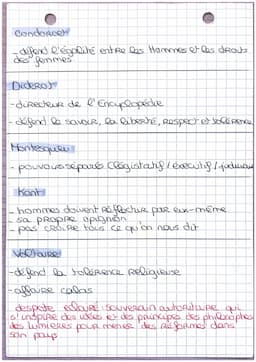 Condorcet
- défend l'égalité entre les Hommes et les droits
des femmes
Diderot
- directeur de l'Encyclopédie
- défend le savoir, la liberté, respect et tolérance
Montesquieu
- pouvoirs séparés (législatif / executif / judiciaire
Kant
- hommes doivent réfléchir par eux-même
- sa propre opinion
- pas croire tous ce qu'on nous dit
Voltaire
- défend la tolérence religieuse
- affaire calas
despote éclairé : souverain autoritaire qui
s'inspire des idées et des principes des philosophes
des lumières pour mener des réformes dans
son pays